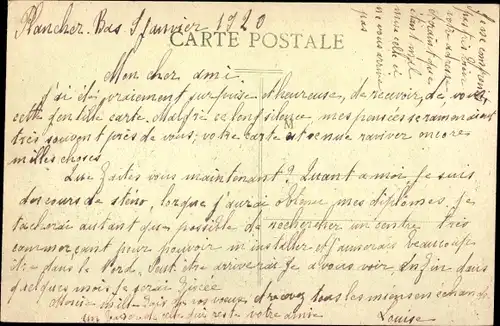 Plancher Bas 5 Janvier 1920
CARTE POSTALE
Mon cher ami
j'ai été vraiment surprise et heureuse, de recevoir, de vous
cette gentille carte. Malgré ce long silence, mes pensées se ramenaient
très souvent près de vous, votre carte est venue raviver encore
milles choses.
Que faites vous maintenant? Quant a moi je suis
au cours de sténo, lorque j'aurai obtenu mes diplômes. Je
tacherai autant que possible de rechercher un centre très
commerçant pour pouvoir m'installer et j'aimerais beaucoup
être dans le Nord. Peut être arriverai je a vous voir. Enfin dans
quelques mois je serai fixée
mille fois de vos voeux et recevez tous les miens en échange
un baiser de celle qui reste votre amie
Louise
Je ne
très bien
votre adresse